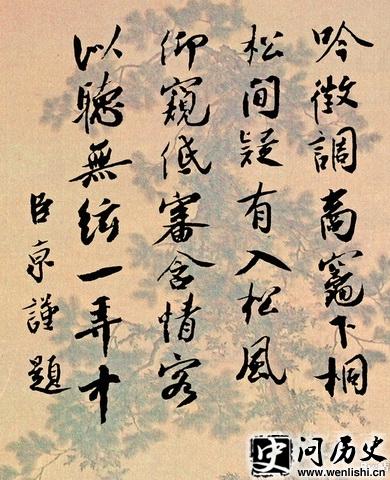 吟徵調商竈下桐
松間疑有入松風
仰窺低審含情客
以聽無絃一弄中
臣京謹題
史 问历史
www.wenlishi.cn